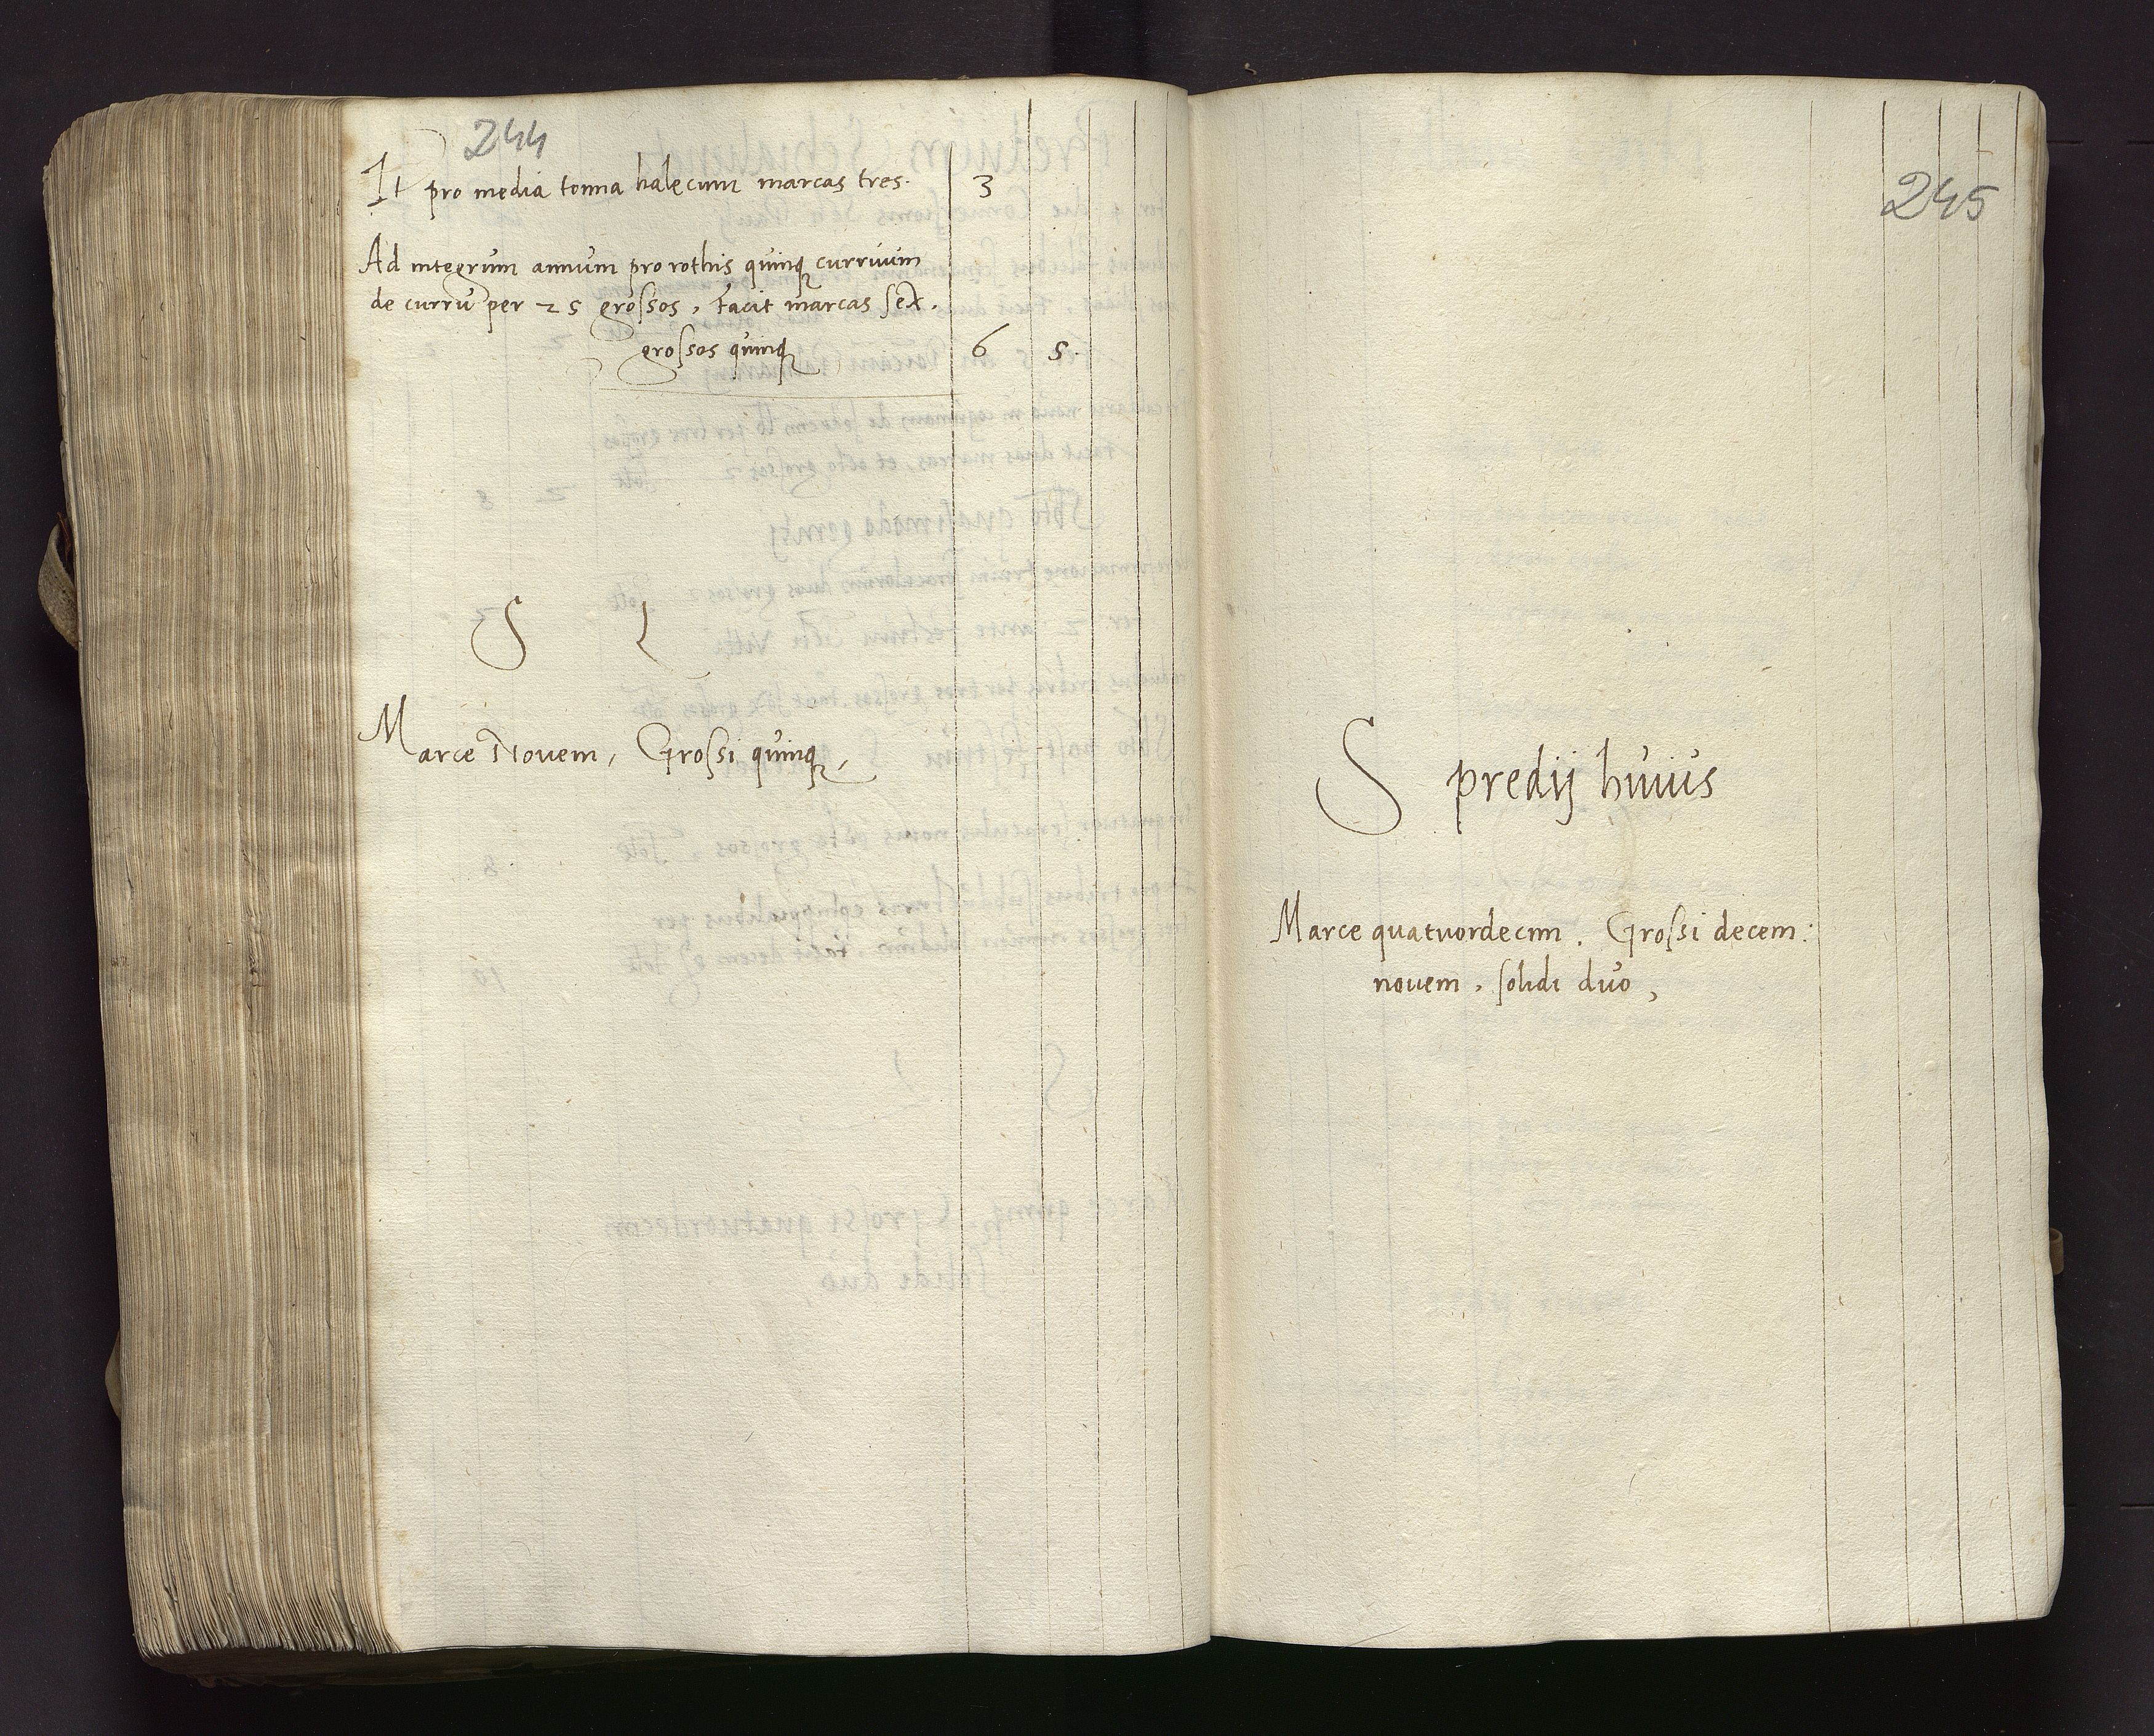 244
It pro media tonna halecum marcas tres. 3
Ad integrum annum pro rothis quinq curruum
de curru per 25 grossos, facit marcas sex.
grossos quinq 6 5.
S L
Marce Novem, Grossi quinq,
245
S predij huius
Marce quatuordecim. Grossi decem:
novem, solidi duo,